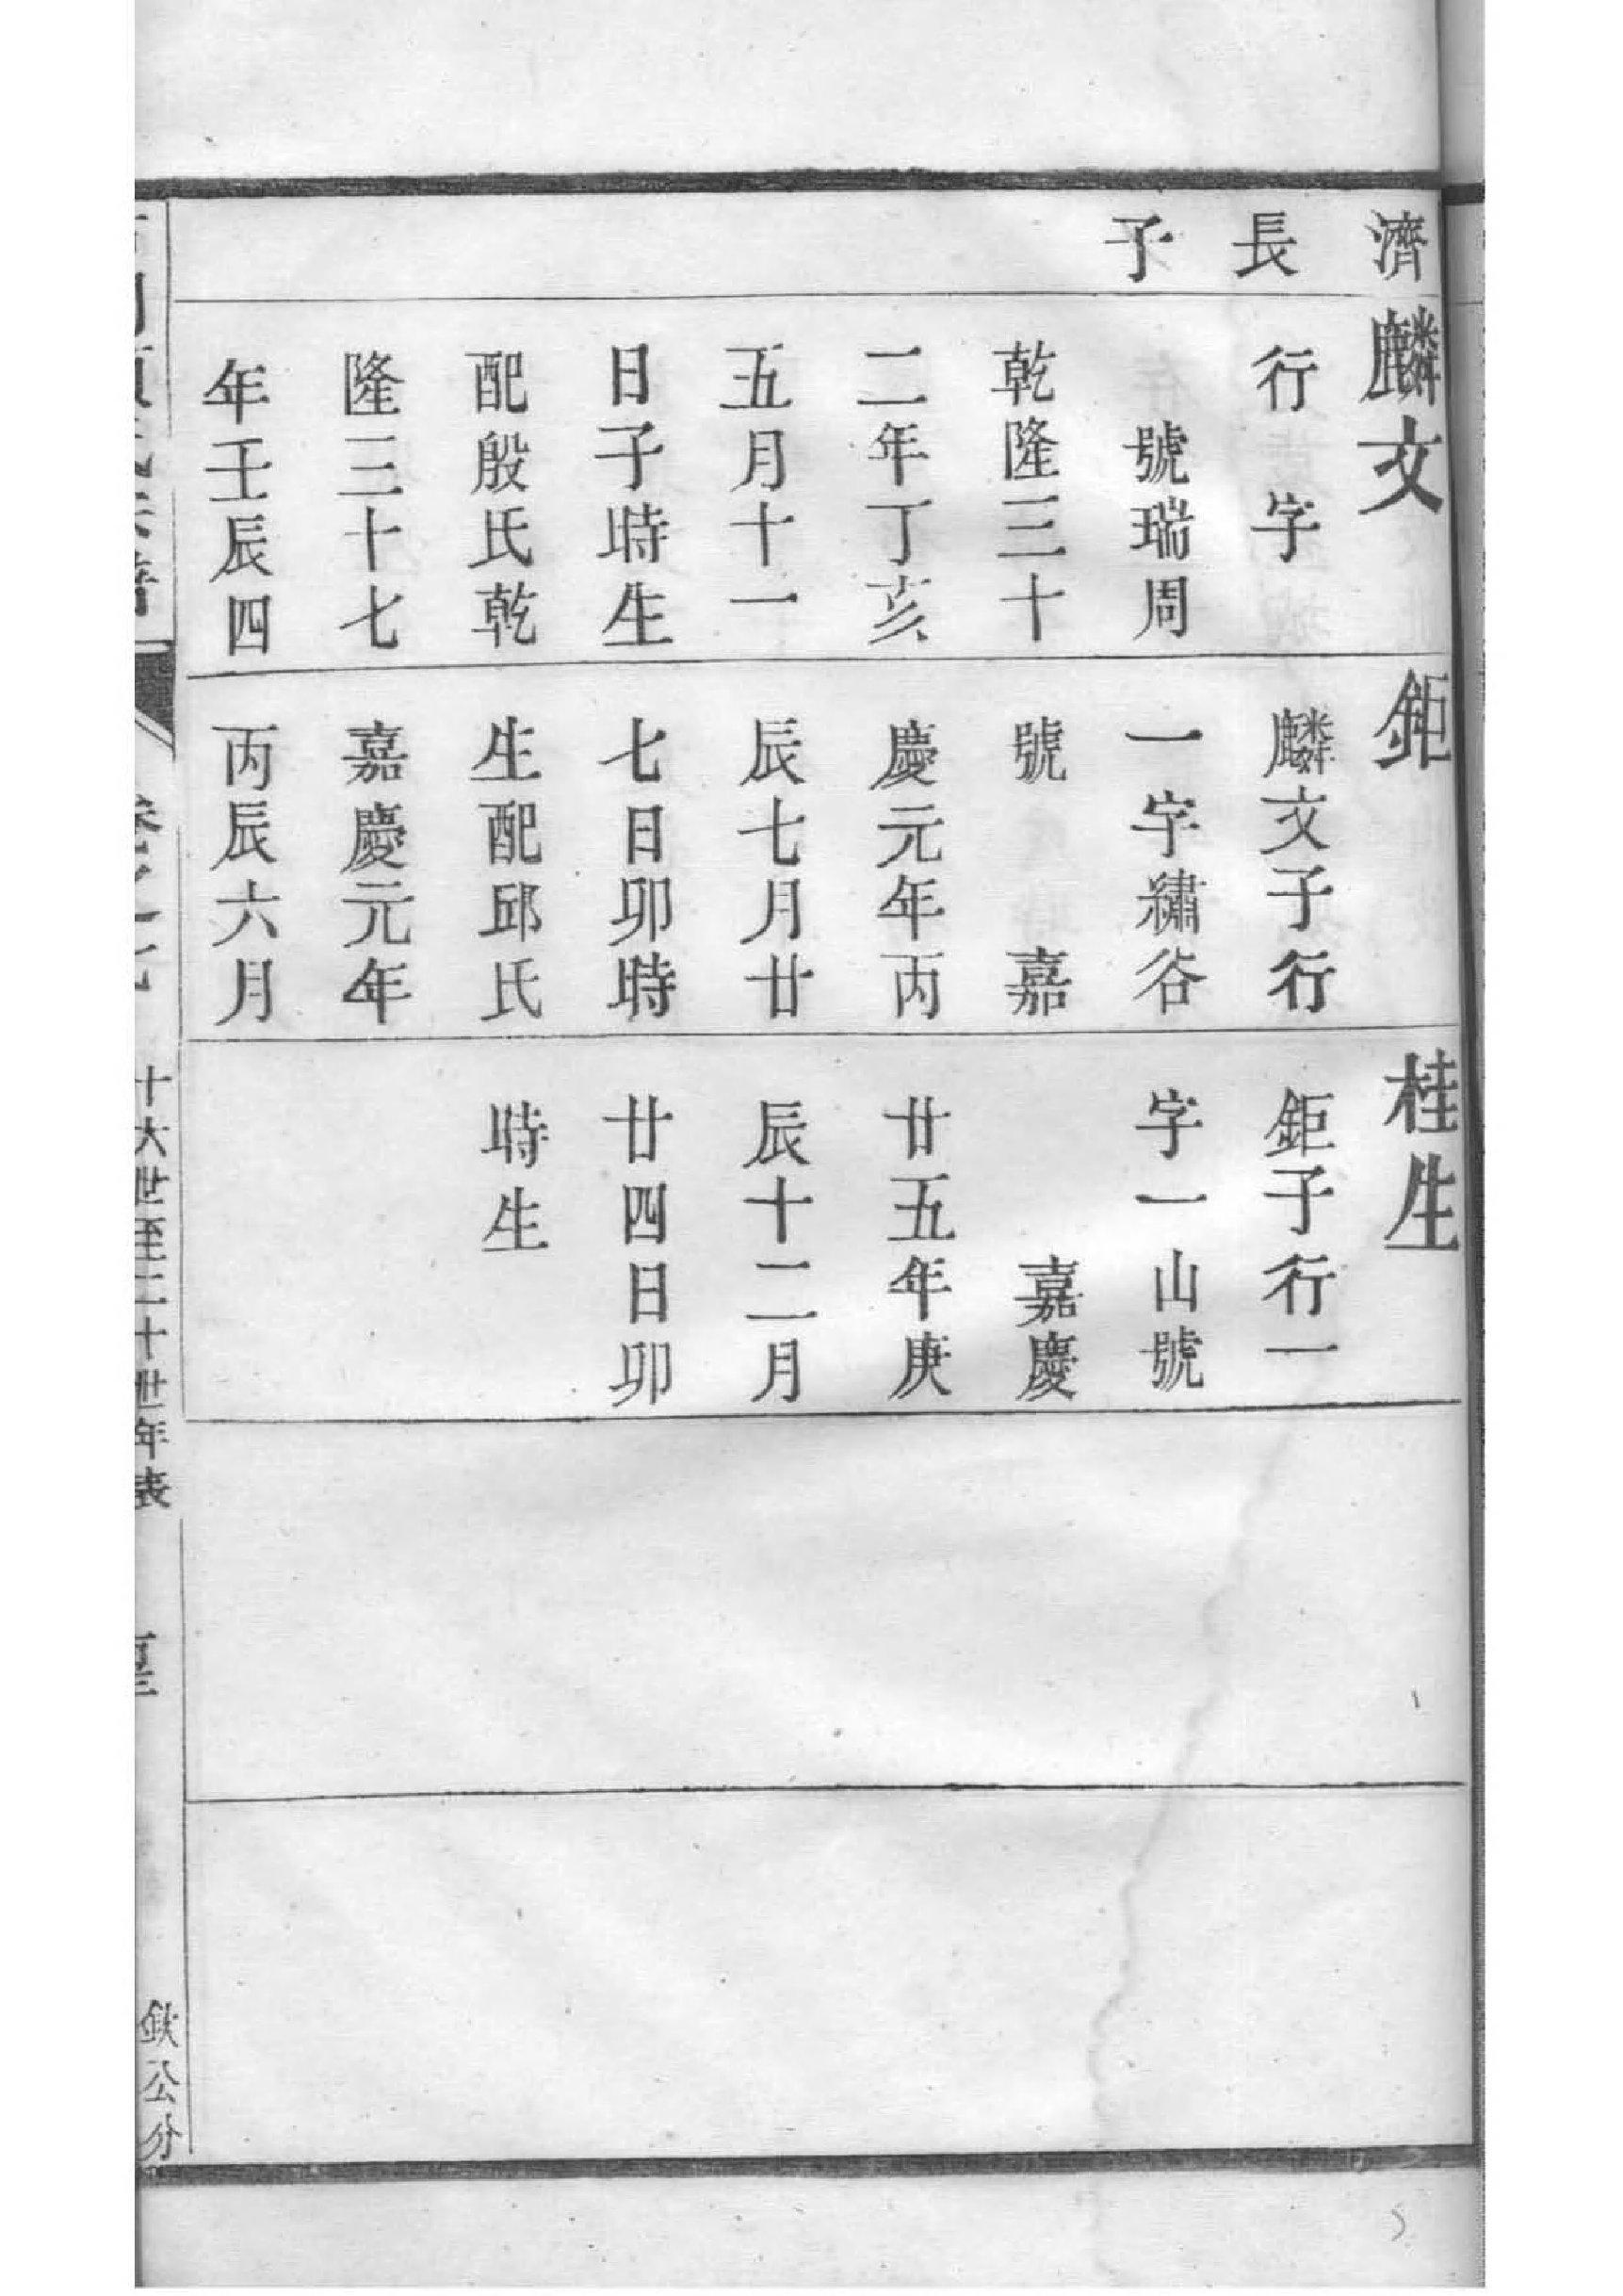 濟
長
子
麟文
行字
號瑞周
乾隆三十
二年丁亥
五月十一
日子時生
配殷氏乾
隆三十七
年壬辰四
鉅
麟文子行
一字繡谷
號嘉
慶元年丙
辰七月廿
七日卯時
生配邱氏
嘉慶元年
丙辰六月
桂生
鉅子行一
字一山號
嘉慶
廿五年庚
辰十二月
廿四日卯
時生
十六世至二十世年表
欽公分